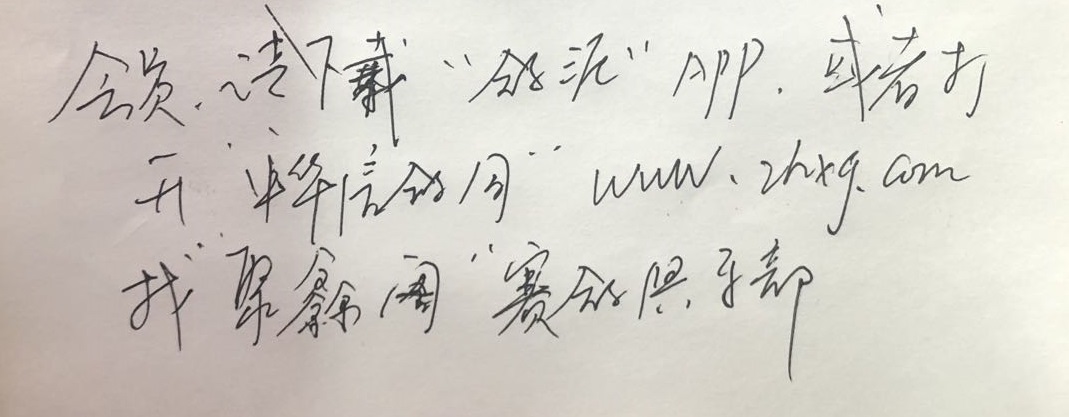 会员.请下载"鸽讯"APP.或者打
开"中华信鸽网"www.zhxg.com
找"聚鑫阁"赛鸽俱乐部